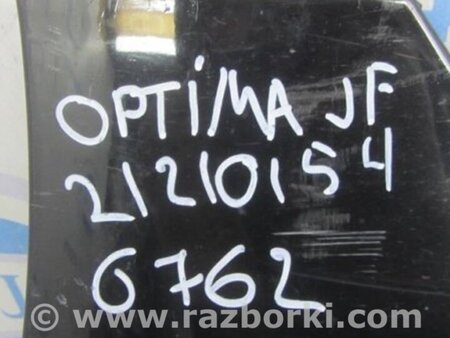 OPTIMA JF
21210154
6762
© www.razborki.com